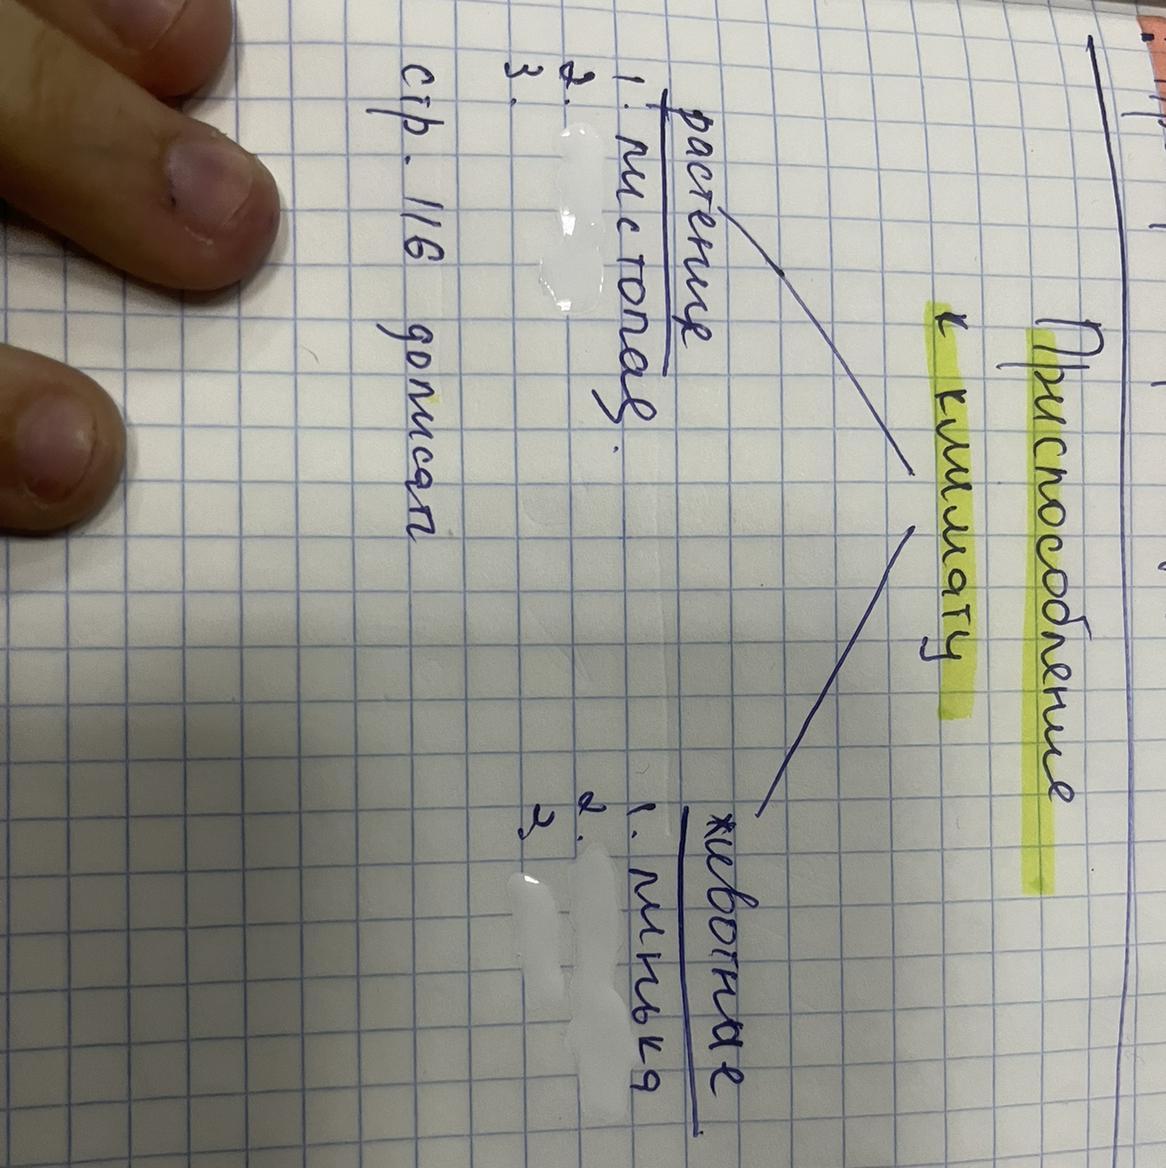 Приспособление
к климату
растение
1. листопад.
2.
3.
животные
1. линька
2.
3
стр. 116 дописать